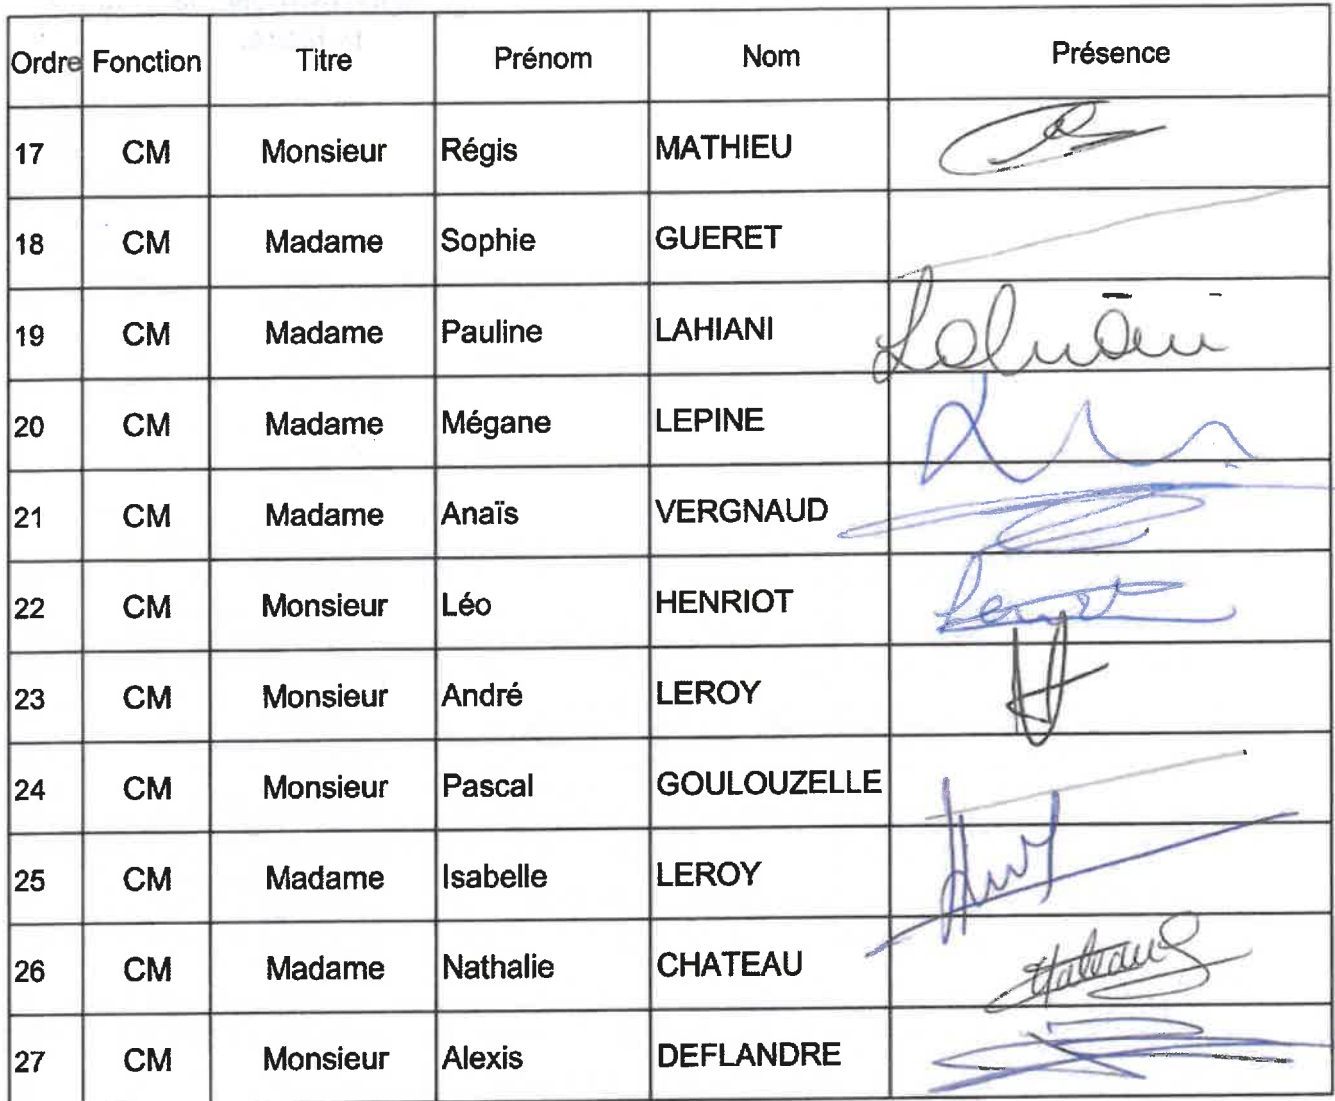 Ordre Fonction Titre Prénom Nom Présence
17 CM Monsieur Régis MATHIEU
18 CM Madame Sophie GUERET
19 CM Madame Pauline LAHIANI Lahiani
20 CM Madame Mégane LEPINE
21 CM Madame Anaïs VERGNAUD
22 CM Monsieur Léo HENRIOT
23 CM Monsieur André LEROY
24 CM Monsieur Pascal GOULOUZELLE
25 CM Madame Isabelle LEROY
26 CM Madame Nathalie CHATEAU
27 CM Monsieur Alexis DEFLANDRE